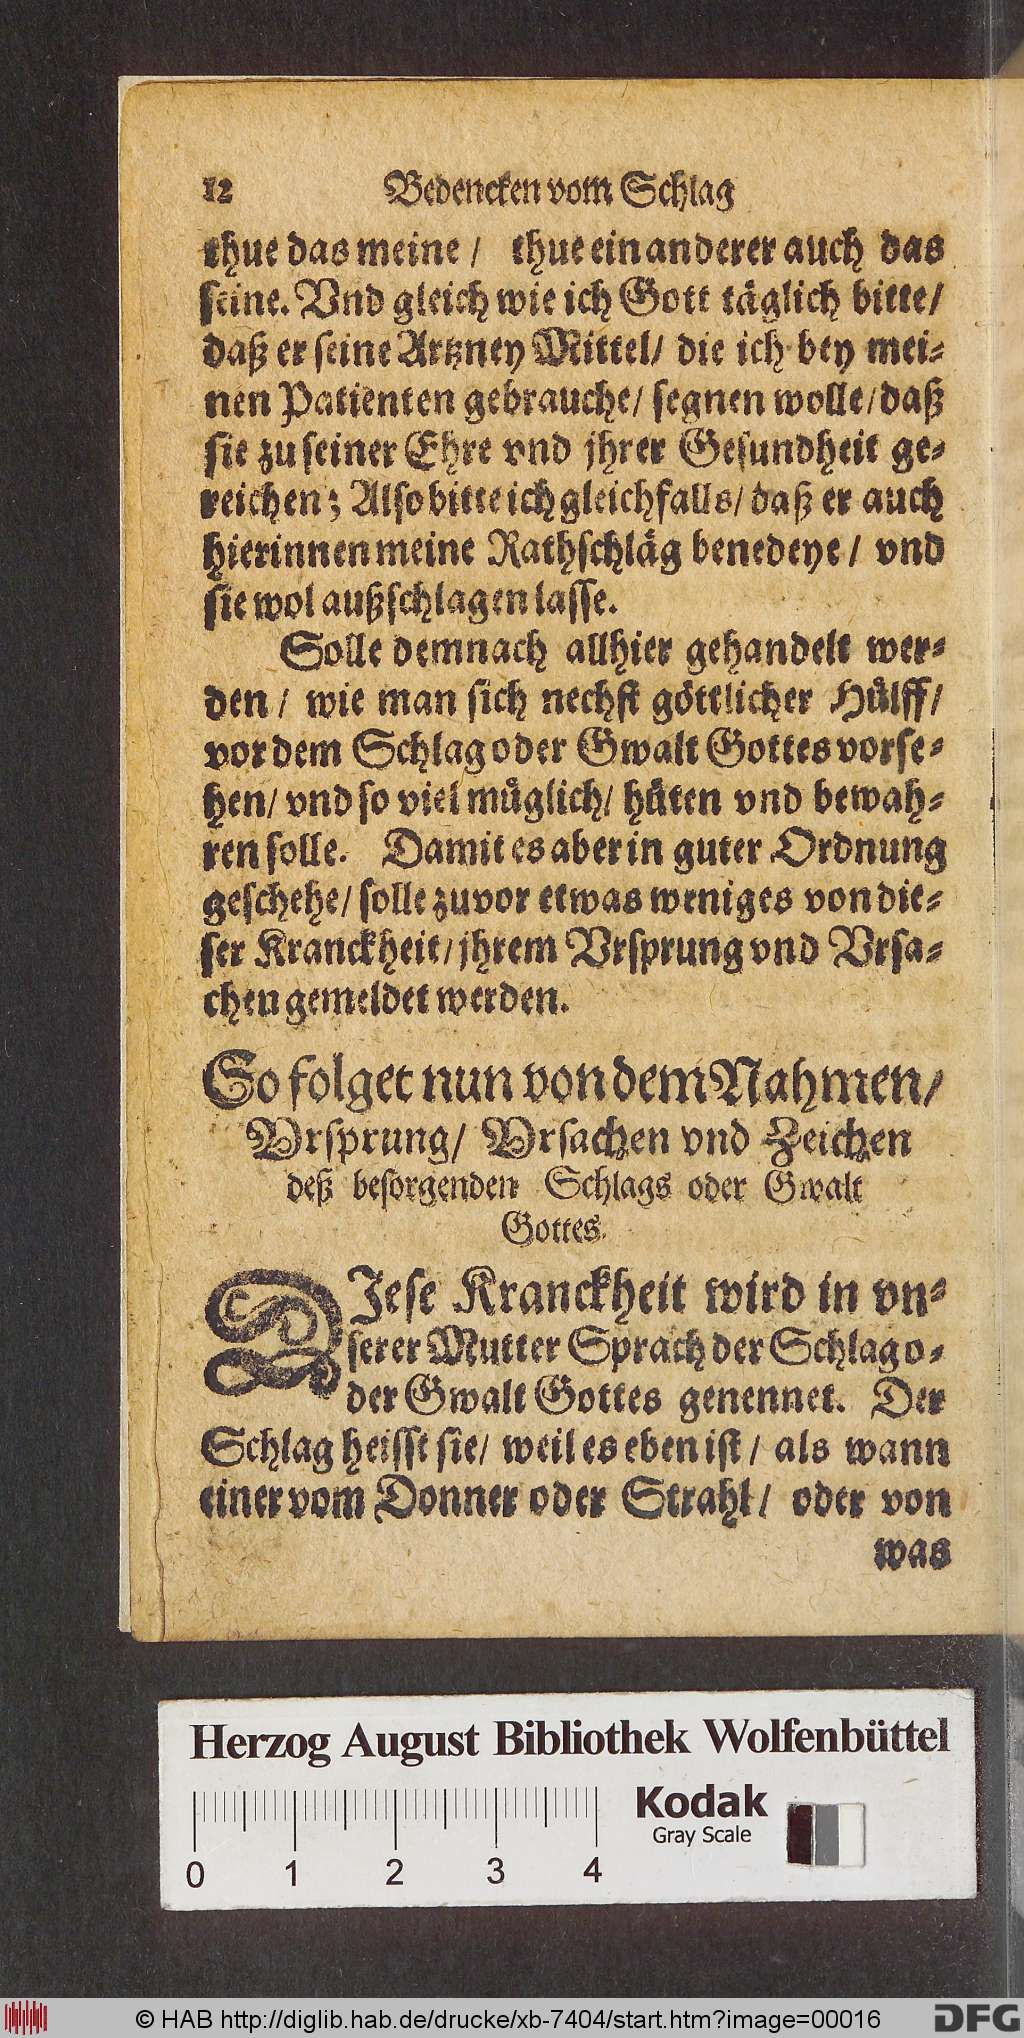 12 Bedencken vom Schlag
thue das meine / thue ein anderer auch das
seine. Vnd gleich wie ich Gott täglich bitte/
daß er seine Artzney Mittel/ die ich bey mei-
nen Patienten gebrauche/ segnen wolle/ daß
sie zu seiner Ehre vnd jhrer Gesundheit ge-
reichen; Also bitte ich gleichfalls/ daß er auch
hierinnen meine Rathschläg benedeye / vnd
sie wol außschlagen lasse.
Solle demnach allhier gehandelt wer-
den / wie man sich nechst göttlicher Hülff/
vor dem Schlag oder Gwalt Gottes vorse-
hen/ vnd so viel müglich/ hüten vnd bewah-
ren solle. Damit es aber in guter Ordnung
geschehe/ solle zuvor etwas weniges von die-
ser Kranckheit/ jhrem Vrsprung vnd Vrsa-
chen gemeldet werden.
So folget nun von dem Nahmen/
Vrsprung/ Vrsachen vnd Zeichen
deß besorgenden Schlags oder Gwalt
Gottes.
DIese Kranckheit wird in vn-
serer Mutter Sprach der Schlag o-
der Gwalt Gottes genennet. Der
Schlag heisst sie/ weil es eben ist / als wann
einer vom Donner oder Strahl/ oder von
was
Herzog August Bibliothek Wolfenbüttel
Kodak
Gray Scale
0 1 2 3 4
© HAB http://diglib.hab.de/drucke/xb-7404/start.htm?image=00016
DFG